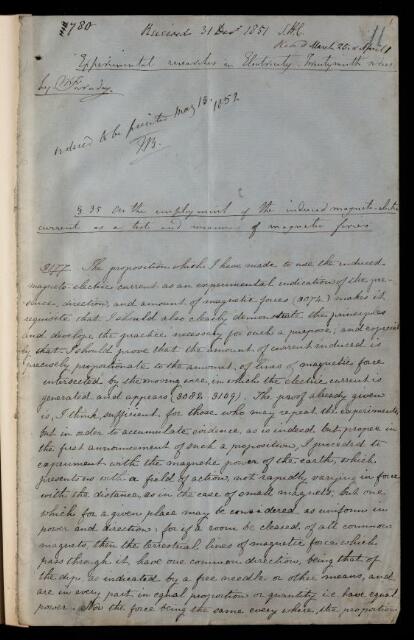 1780
Received 31 Decr 1851 S.H.C.
Read March 25 & April 1
11
Experimental researches in Electricity. Twenty ninth series
by M Faraday
ordered to be printed May 13. 1852
§ 35 On the employment of the induced magneto-electric
current as a test and measure of magnetic forces
3177 The proposition which I have made to use the induced
magneto-electric current as an experimental indication of the pre-
sence, direction, and amount of magnetic forces (3074) makes it
requisite that I should also clearly demonstrate the principles
and develope the practice necessary for such a purpose; and especial
ly that I should prove that the amount of current induced is
precisely proportionate to the amount of lines of magnetic force
intersected by the moving wire, in which the electric current is
generated and appears (3082. 3109). The proof already given
is, I think, sufficient for those who may repeat the experiments;
but in order to accumulate evidence, as is indeed but proper in
the first announcement of such a proposition, I proceeded to
experiment with the magnetic power of the earth, which
presents us with a field of action, not rapidly varying in force
with the distance, as in the case of small magnets, but one
which for a given place may be considered as uniform in
power and direction; for if a room be cleared of all common
magnets, then the terrestrial lines of magnetic force which
pass through it, have one common direction, being that of
the dip, as indicated by a free needle or other means, and
are in every part in equal proportion or quantity i.e. have equal
power. Now the force being the same every where, the proportion